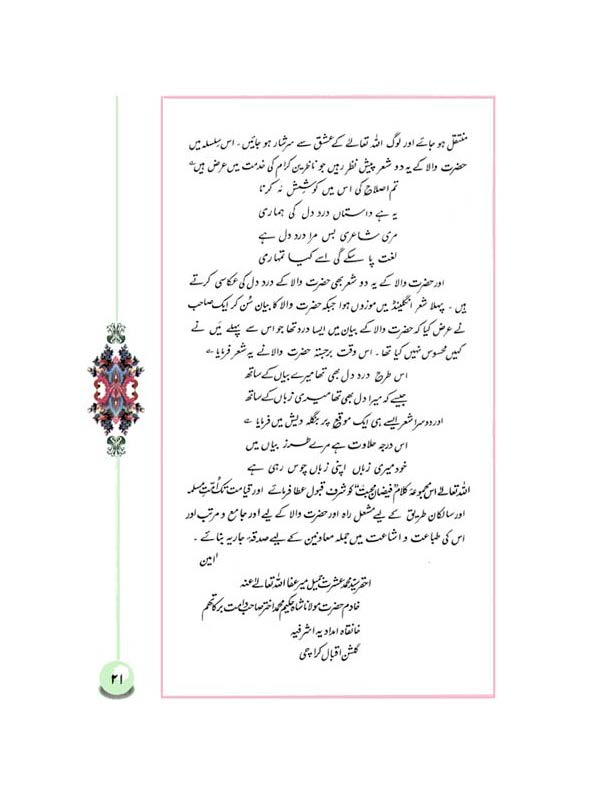 منتقل ہو جائے اور لوگ اللہ تعالےٰ کے عشق سے سرشار ہو جائیں۔ اس سلسلہ میں
حضرت والا کے یہ دو شعر پیش نظر رہیں جو ناظرین کرام کی خدمت میں عرض ہیں ؎
تم اصلاح کی اس میں کوشش نہ کرنا
یہ ہے داستاں درد دل کی ہماری
مری شاعری بس مرا درد دل ہے
لغت پا سکے گی اسے کیا تمہاری
اور حضرت والا کے یہ دو شعر بھی حضرت والا کے درد دل کی عکاسی کرتے
ہیں۔ پہلا شعر انگلینڈ میں موزوں ہوا جبکہ حضرت والا کا بیان سُن کر ایک صاحب
نے عرض کیا کہ حضرت والا کے بیان میں ایسا درد تھا جو اس سے پہلے میَں نے
کہیں محسوس نہیں کیا تھا۔ اس وقت برجستہ حضرت والا نے یہ شعر فرمایا ؎
اس طرح درد دل بھی تھا میرے بیاں کے ساتھ
جیسے کہ میرا دل بھی تھا میری زباں کے ساتھ
اور دوسرا شعر ایسے ہی ایک موقع پر بنگلہ دیش میں فرمایا ؎
اس درجہ حلاوت ہے مرے طرز بیاں میں
خود میری زباں اپنی زباں چوس رہی ہے
اللہ تعالےٰ اس مجموعۂ کلام "فیضان محبت" کو شرف قبول عطا فرمائے اور قیامت تک اُمّتِ مسلمہ
اور سالکان طریق کے لیے مشعل راہ اور حضرت والا کے لیے اور جامع و مرتب اور
اس کی طباعت و اشاعت میں جملہ معاونین کے لیے صدقۂ جاریہ بنائے۔
اٰمین
احقر سید محمد عشرت جمیل میر عفا اللہ تعالےٰ عنہ
خادم حضرت مولانا شاہ حکیم محمد اختر صاحب دامت برکاتہم
خانقاہ امدادیہ اشرفیہ
گلشن اقبال کراچی
۲۱